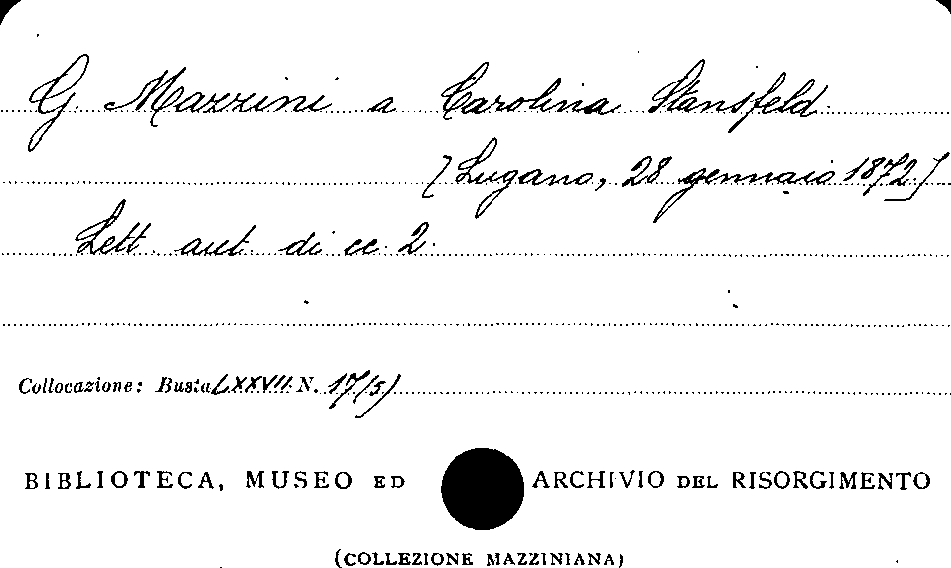 G. Mazzini a Carolina Stansfeld.
[Lugano, 28 gennaio 1872.]
Lett. aut. di cc. 2.
Collocazione: Busta LXXVII N. 17(5)
BIBLIOTECA, MUSEO ED ARCHIVIO DEL RISORGIMENTO
(COLLEZIONE MAZZINIANA)